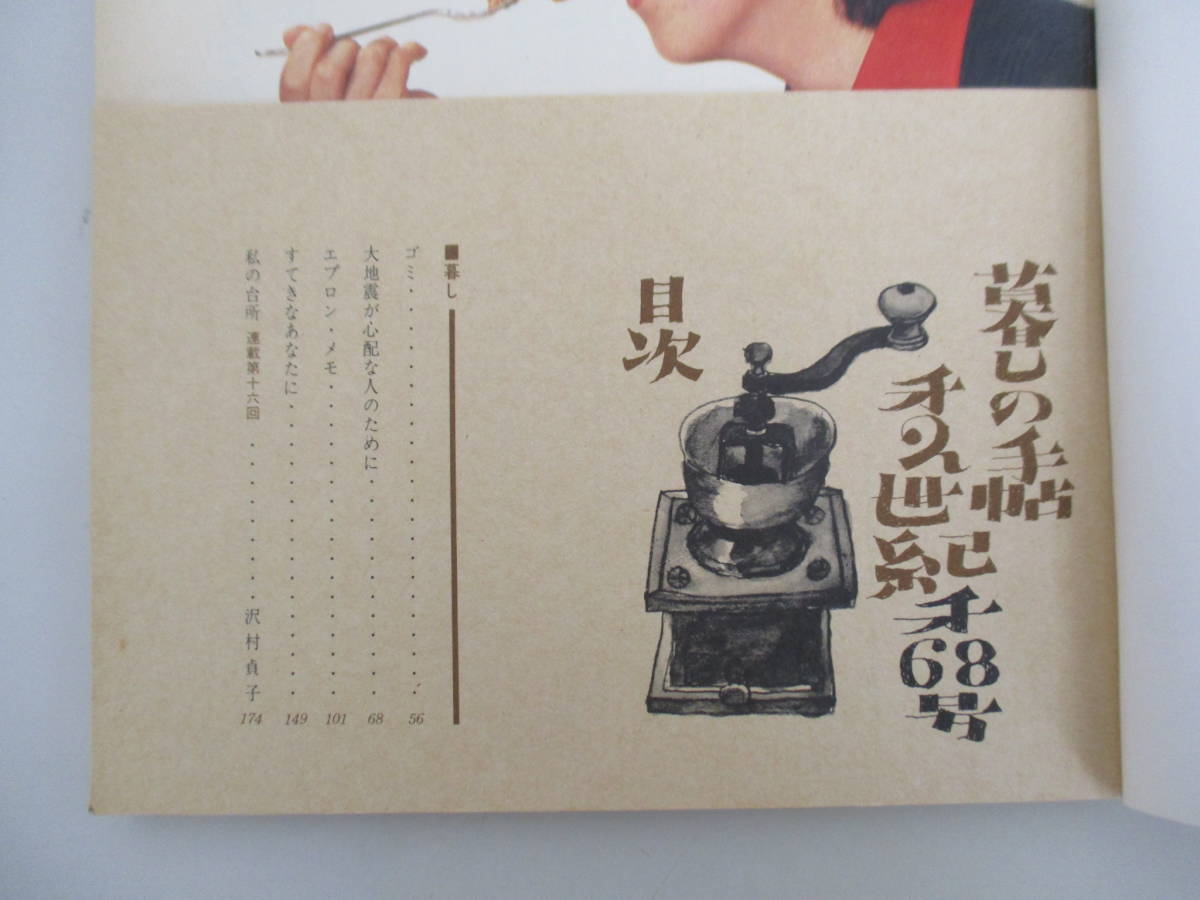 暮しの手帖
オ2世紀
オ68号
目次
■暮し
ゴミ・・・・・・・・・・・・・・・・・・56
大地震が心配な人のために・・・・・・・・68
エプロン・メモ・・・・・・・・・・・・・101
すてきなあなたに・・・・・・・・・・・・149
私の台所 連載第十六回・・・・・・・沢村貞子 174